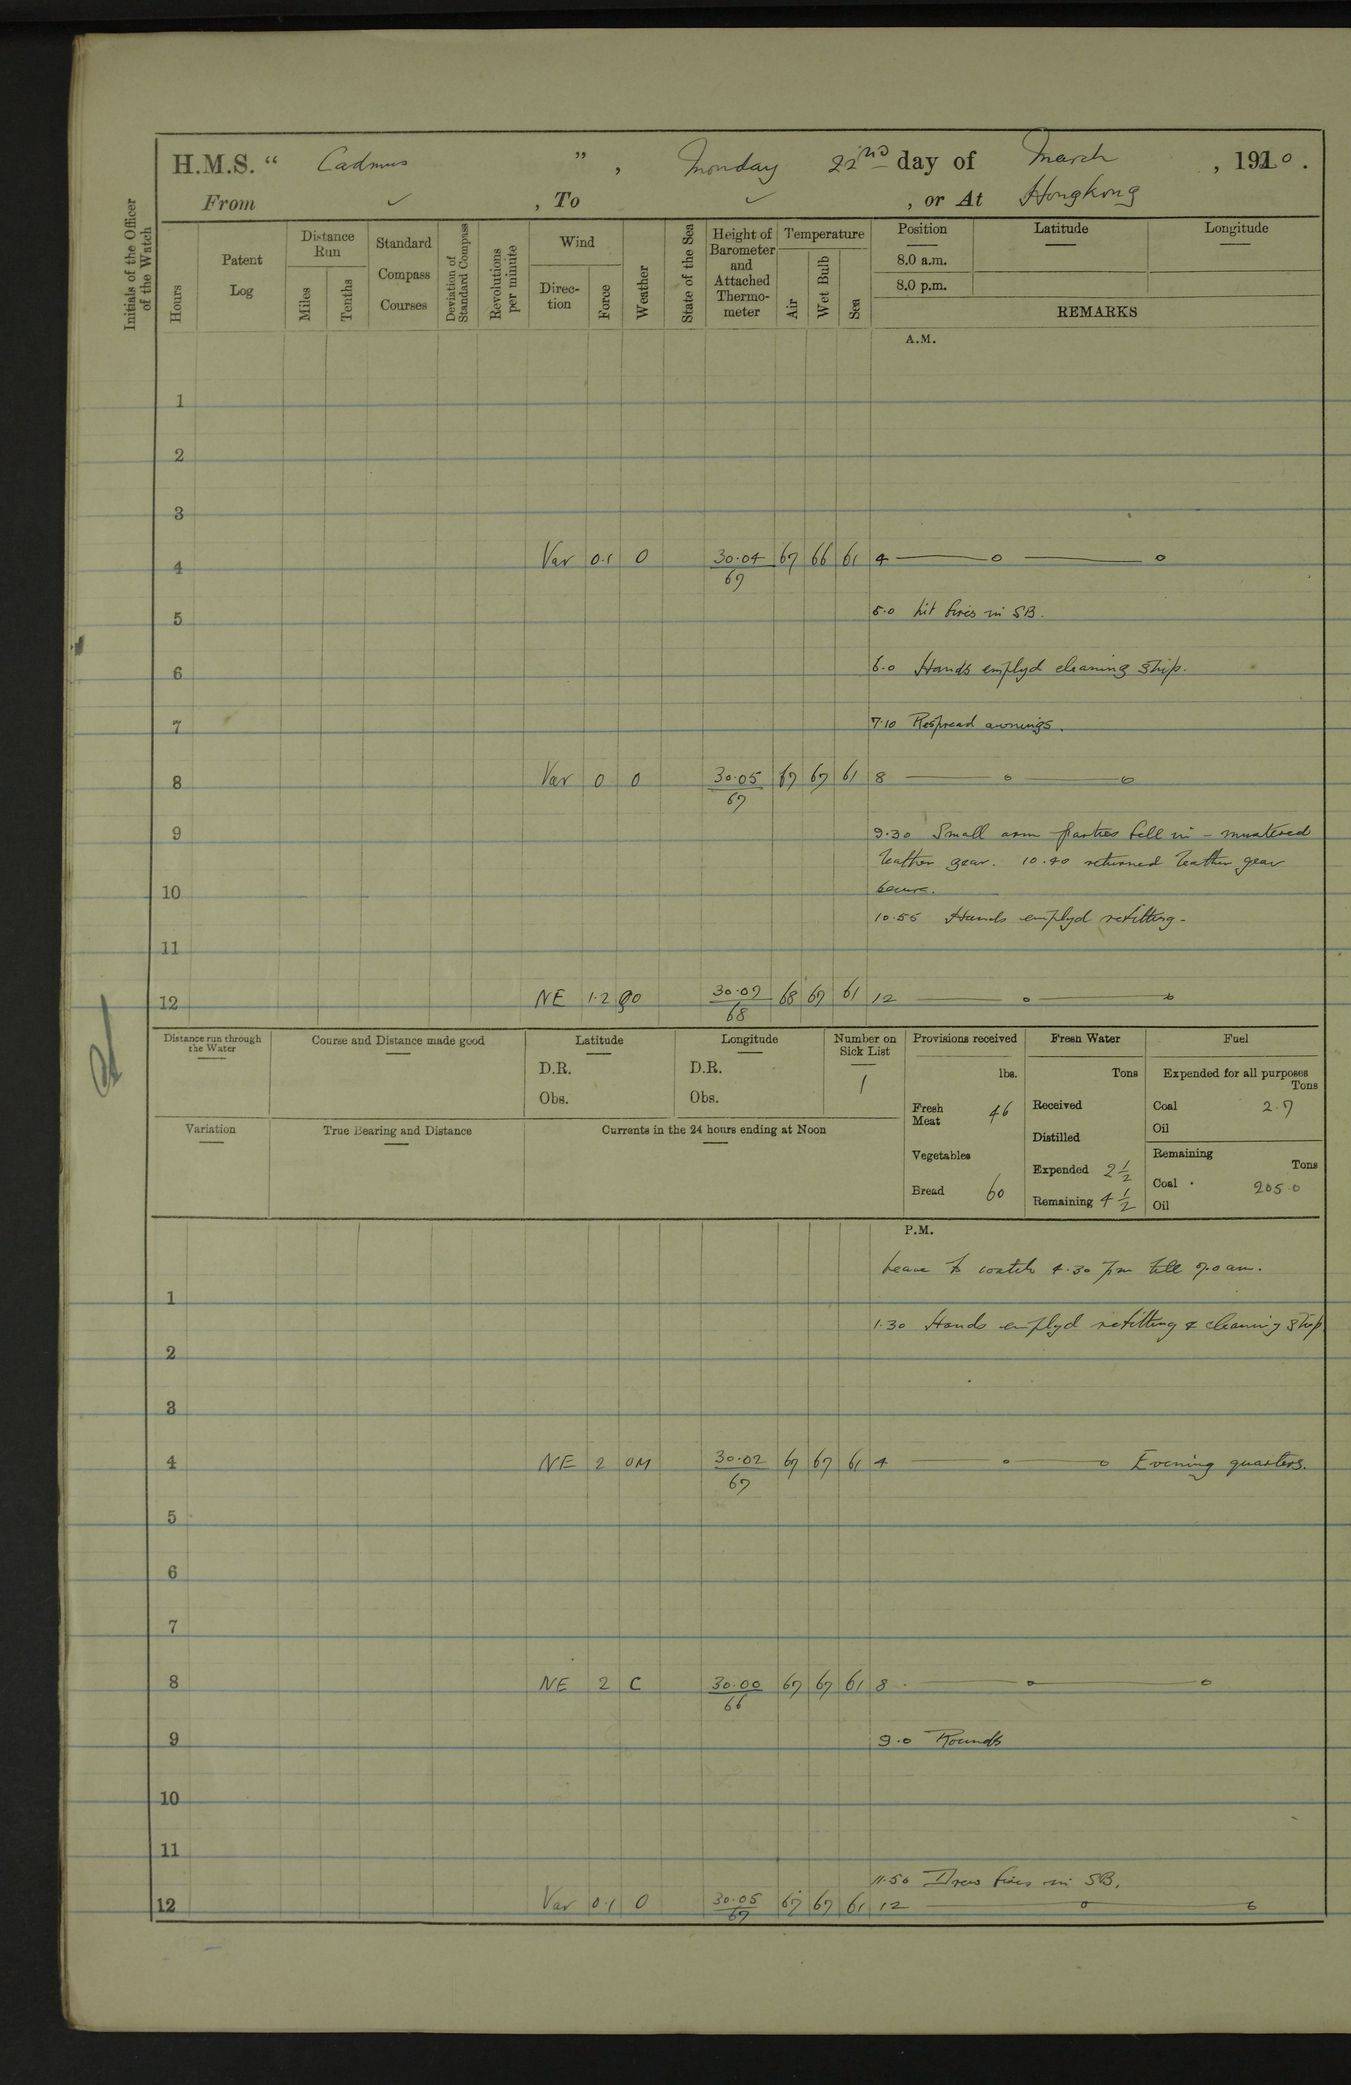 H.M.S. “ Cadmus ” , Monday 22ND day of March , 1920 .
From ✓ , To ✓ , or At Hongkong
Initials of the Officer of the Watch
Hours
Patent Log
Distance Run
Miles
Tenths
Standard Compass Courses
Deviation of Standard Compass
Revolutions per minute
Wind
Direction
Force
Weather
State of the Sea
Height of Barometer and Attached Thermometer
Temperature
Air
Wet Bulb
Sea
Position
8.0 a.m.
8.0 p.m.
Latitude
Longitude
REMARKS
A.M.
1
2
3
4 Var 0.1 O 30.04/67 67 66 61 4 —— o —— o
5 5.0 Lit fires in SB.
6 6.0 Hands emplyd cleaning ship.
7 7.10 Respread awnings.
8 Var 0 O 30.05/67 67 67 61 8 —— o —— o
9 9.30 Small arm parties fell in – mustered
leather gear. 10.40 returned leather gear
10
10.55 Hands emplyd refitting-
11
12 NE 1.2 O 30.07/68 68 67 61 12 —— o —— o
Distance run through the Water
Course and Distance made good
Latitude
D.R.
Obs.
Longitude
D.R.
Obs.
Number on Sick List
1
Provisions received
lbs.
Fresh Meat 46
Vegetables
Bread 60
Fresh Water
Tons
Received
Distilled
Expended 2½
Remaining 4½
Fuel
Expended for all purposes
Tons
Coal 2.7
Oil
Remaining
Tons
Coal 205.0
Oil
Variation
True Bearing and Distance
Currents in the 24 hours ending at Noon
P.M.
Leave to watch 4.30 pm till 7.0 am.
1
1.30 Hands emplyd refitting & cleaning ship
2
3
4 NE 2 OM 30.02/67 67 67 61 4 —— o —— o Evening quarters.
5
6
7
8 NE 2 C 30.00/66 67 67 61 8 —— o —— o
9 9.0 Rounds
10
11
11.50 Drew fires in SB.
12 Var 0.1 O 30.05/67 67 67 61 12 —— o —— o